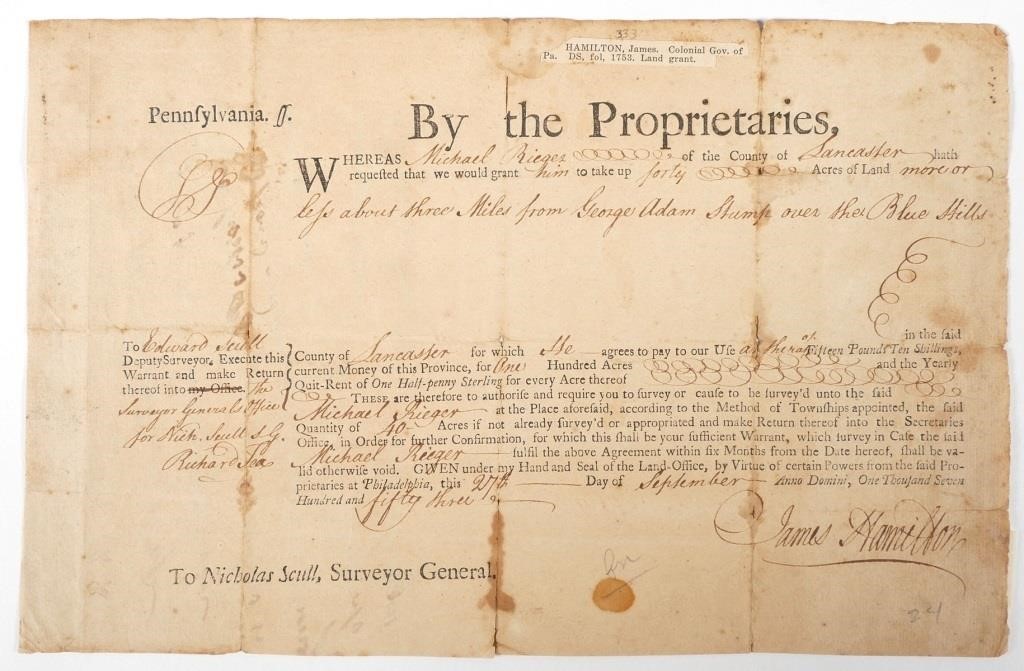 333
HAMILTON, James. Colonial Gov. of
Pa. DS, fol, 1753. Land grant.
Pennſylvania. ſſ.
By the Proprietaries,
WHEREAS Michael Rieger of the County of Lancaster hath
requeſted that we would grant him to take up forty Acres of Land more or
leſs about three Miles from George Adam Stump over the Blue Hills
in the ſaid
County of Lancaster for which He agrees to pay to our Uſe at the rate of Fifteen Pounds Ten Shillings,
current Money of this Province, for One Hundred Acres and the Yearly
Quit-Rent of One Half-penny Sterling for every Acre thereof
THESE are therefore to authoriſe and require you to ſurvey or cauſe to be ſurvey'd unto the ſaid
Michael Rieger at the Place aforeſaid, according to the Method of Townſhips appointed, the ſaid
Quantity of 40 Acres if not already ſurvey'd or appropriated and make Return thereof into the Secretaries
Office, in Order for further Confirmation, for which this ſhall be your ſufficient Warrant, which ſurvey in Caſe the ſaid
Michael Rieger fulfil the above Agreement within ſix Months from the Date hereof, ſhall be va-
lid otherwiſe void. GIVEN under my Hand and Seal of the Land-Office, by Virtue of certain Powers from the ſaid Pro-
prietaries at Philadelphia, this 27th Day of September Anno Domini, One Thouſand Seven
Hundred and fifty three.
To Edward Scull
Deputy Surveyor. Execute this
Warrant and make Return
thereof into my Office. the
Surveyor Generals Office
for Nich. Scull S.G.
Richard Lea
James Hamilton
To Nicholas Scull, Surveyor General.
24